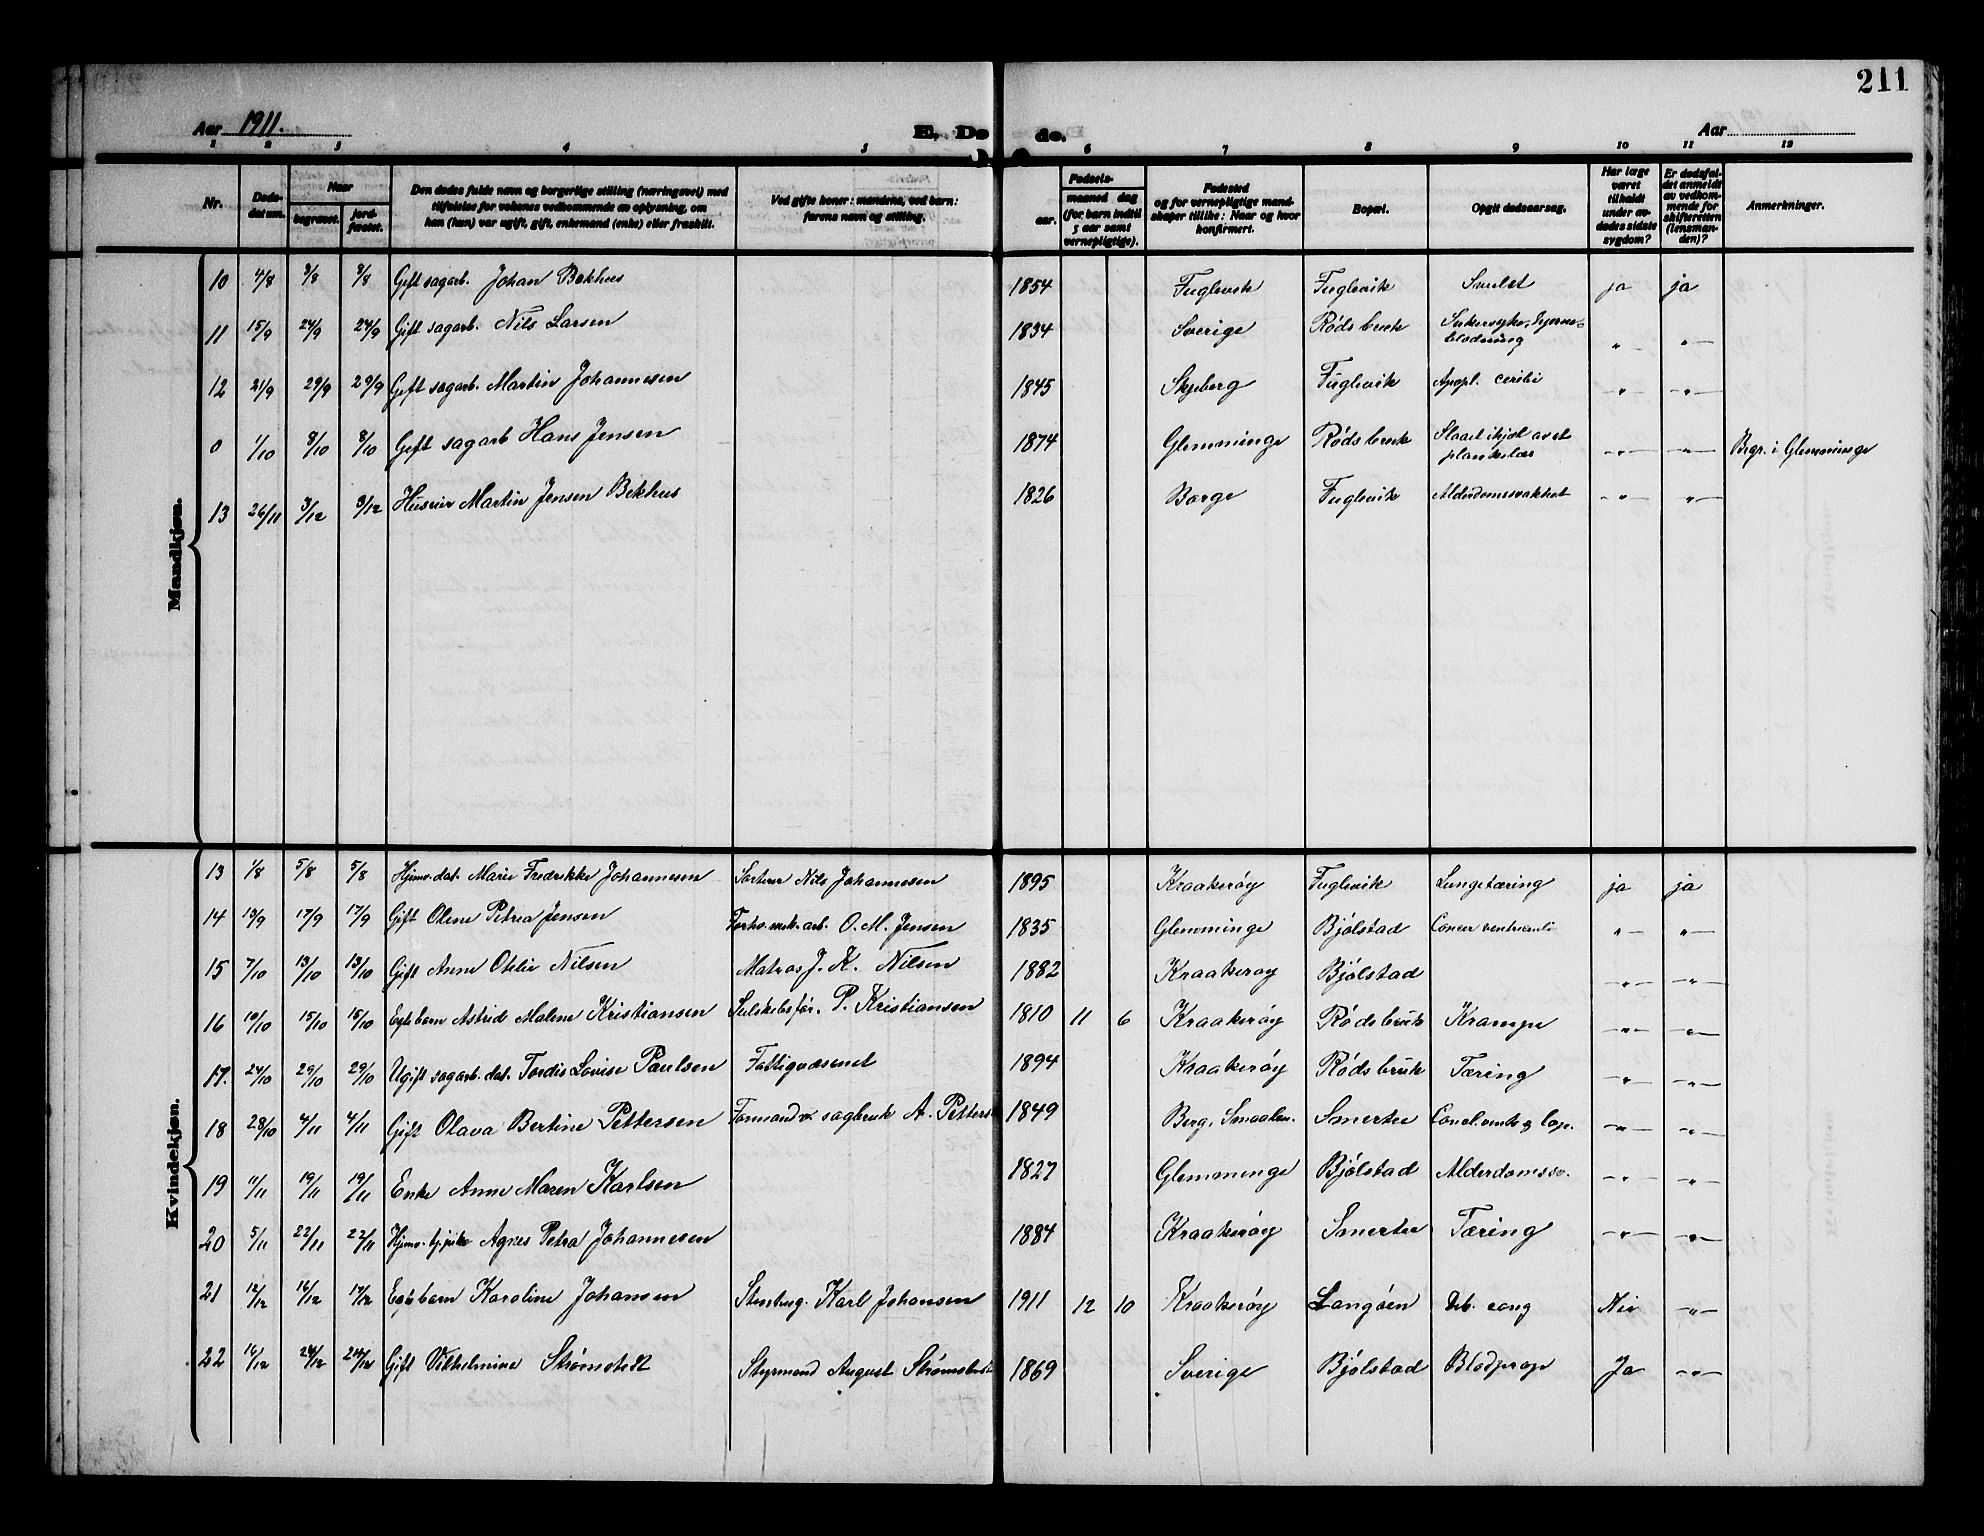 211
Aar 1911.
E. Dø
de.
Aar
1 2 3 4 5 6 7 8 9 10 11 12
Nr.
Døds-datum.
Naar
begravet.
jord-fæstet.
Den dødes fulde navn og borgerlige stilling (næringsvei) med
tilføielse for voksnes vedkommende av oplysning, om
han (hun) var ugift, gift, enkemand (enke) eller fraskilt.
Ved gifte koner: mandens, ved barn:
farens navn og stilling.
Fødsels-
aar.
maaned dag
(for barn indtil
5 aar samt
vernepligtige).
Fødested
og for vernepligtige mand-
skaper tillike: Naar og hvor
konfirmert.
Bopæl.
Opgit dødsaarsag.
Har læge
været
tilkaldt
under av-
dødes sidste
sygdom?
Er dødsfal-
det anmeldt
av vedkom-
mende for
skifteretten
(lensman-
den)?
Anmerkninger.
Mandkjøn.
10 4/8 8/8 8/8 Gift sagarb. Johan Bekhus 1854 Fuglevik Fuglevik Svulst ja ja
11 15/9 24/9 24/9 Gift sagarb. Nils Larsen 1834 Sverige Røds bruk Sukersyke, hjerne-
blødning -"- -"-
12 21/9 29/9 29/9 Gift sagarb. Martin Johannesen 1845 Skjeberg Fuglevik Apopl. cerebi -"- -"-
0 1/10 8/10 8/10 Gift sagarb Hans Jensen 1874 Glemminge Røds bruk Slaaet ihjæl av et
plankelæs -"- -"- Begr. i Glemminge
13 26/11 3/12 3/12 Huseier Martin Jensen Bekhus 1826 Borge Fuglevik Alderdomssvakhet -"- -"-
Kvindekjøn.
13 1/8 5/8 5/8 Hjemv. dat. Marie Fredrikke Johannesen Sorterer Nils Johannesen 1895 Kraakerøy Fuglevik Lungetæring ja ja
14 13/9 17/9 17/9 Gift Olene Petrea Jensen Forhv. mek. arb. O. M. Jensen 1835 Glemminge Bjølstad Cancer ventriculi -"- -"-
15 7/10 13/10 13/10 Gift Anne Otelie Nilsen Matros J. K. Nilsen 1882 Kraakerøy Bjølstad -"- -"-
16 10/10 15/10 15/10 Egtebarn Astrid Malene Kristiansen P. Kristiansen 1810 11 6 Kraakerøy Røds bruk Krampe -"- -"-
17. 24/10 29/10 29/10 Ugift sagarb. dat. Tordis Lovise Paulsen Fattigvæsenet 1894 Kraakerøy Røds bruk Tæring -"- -"-
18 28/10 4/11 4/11 Gift Olava Bertine Pettersen Formand v. sagbruk A. Petters 1849 Berg, Smaalen. Smertu -"- -"-
19 11/11 19/11 19/11 Enke Anne Maren Karlsen 1827 Glemminge Bjølstad Alderdomssv. -"- -"-
20 5/11 22/11 22/11 Agnes Petra Johannesen 1884 Kraakerøy Smertu Tæring -"- -"-
21 12/12 16/12 17/12 Egtebarn Karoline Johansen Stenhug. Karl Johansen 1911 12 10 Kraakerøy Langøen Deb. cong Nei -"-
22 16/12 24/12 24/12 Gift Vilhelmine Strømstedt Styrmand August Strømstedt 1869 Sverige Bjølstad Blodprop Ja -"-